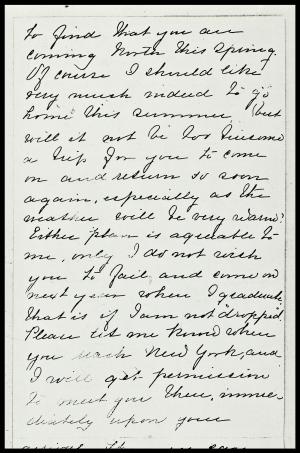 to find that you are
coming North this Spring.
Of course I should like
very much indeed to go
home this summer, but
will it not be too tiresome
a trip for you to come
on and return so soon
again, especially as the
weather will be very warm?
Either plan is agreeable to
me, only I do not wish
you to fail and come on
next year when I graduate,
that is if I am not "dropped."
Please let me know when
you reach New York, and
I will get permission
to meet you there, imme-
diately upon your